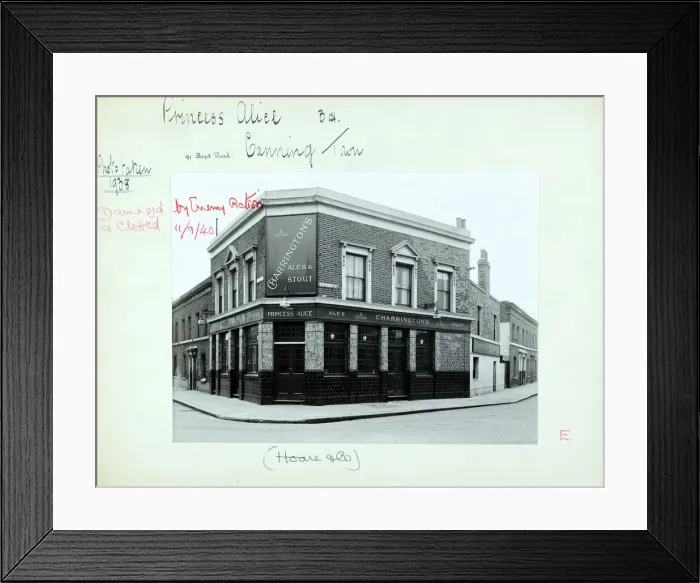 Princess Alice BH.
91 Boyd Road. Canning Town
Photo taken
1938
Damaged by Enemy Action
& Closed 11/9/40
CHARRINGTON'S
ALES &
STOUT
PRINCESS ALICE ALES CHARRINGTON'S STOUT
(Hoare & Co)
E.